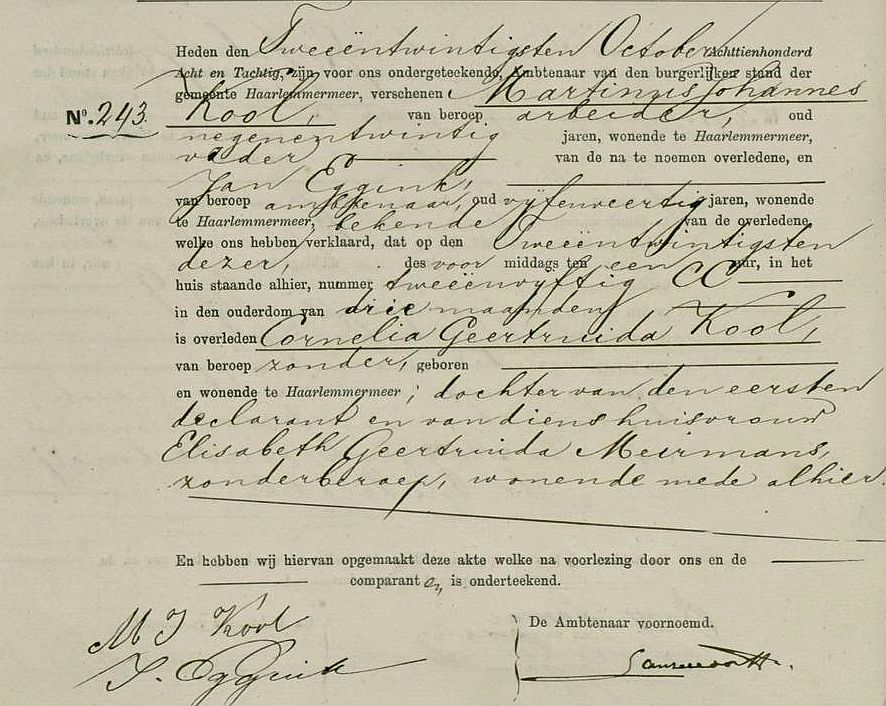 Heden den Tweeëntwintigsten October Achttienhonderd
Acht en Tachtig, zijn voor ons ondergeteekende, Ambtenaar van den burgerlijken stand der
gemeente Haarlemmermeer, verschenen Martinus Johannes
No. 243.
Kool, van beroep arbeider, oud
negenentwintig jaren, wonende te Haarlemmermeer,
vader van de na te noemen overledene, en
Jan Eggink,
van beroep ambtenaar, oud vijfenveertig jaren, wonende
te Haarlemmermeer, bekende van de overledene,
welke ons hebben verklaard, dat op den Tweeëntwintigsten
dezer, des voor middags ten een uur, in het
huis staande alhier, nummer tweeënvyftig CC
in den ouderdom van drie maanden
is overleden Cornelia Geertruida Kool,
van beroep zonder, geboren
en wonende te Haarlemmermeer; dochter van den eersten
declarant en van diens huisvrouw
Elisabeth Geertruida Meirmans,
zonder beroep, wonende mede alhier.
En hebben wij hiervan opgemaakt deze akte welke na voorlezing door ons en de
comparanten, is onderteekend.
De Ambtenaar voornoemd.
M J Kool
J. Eggink